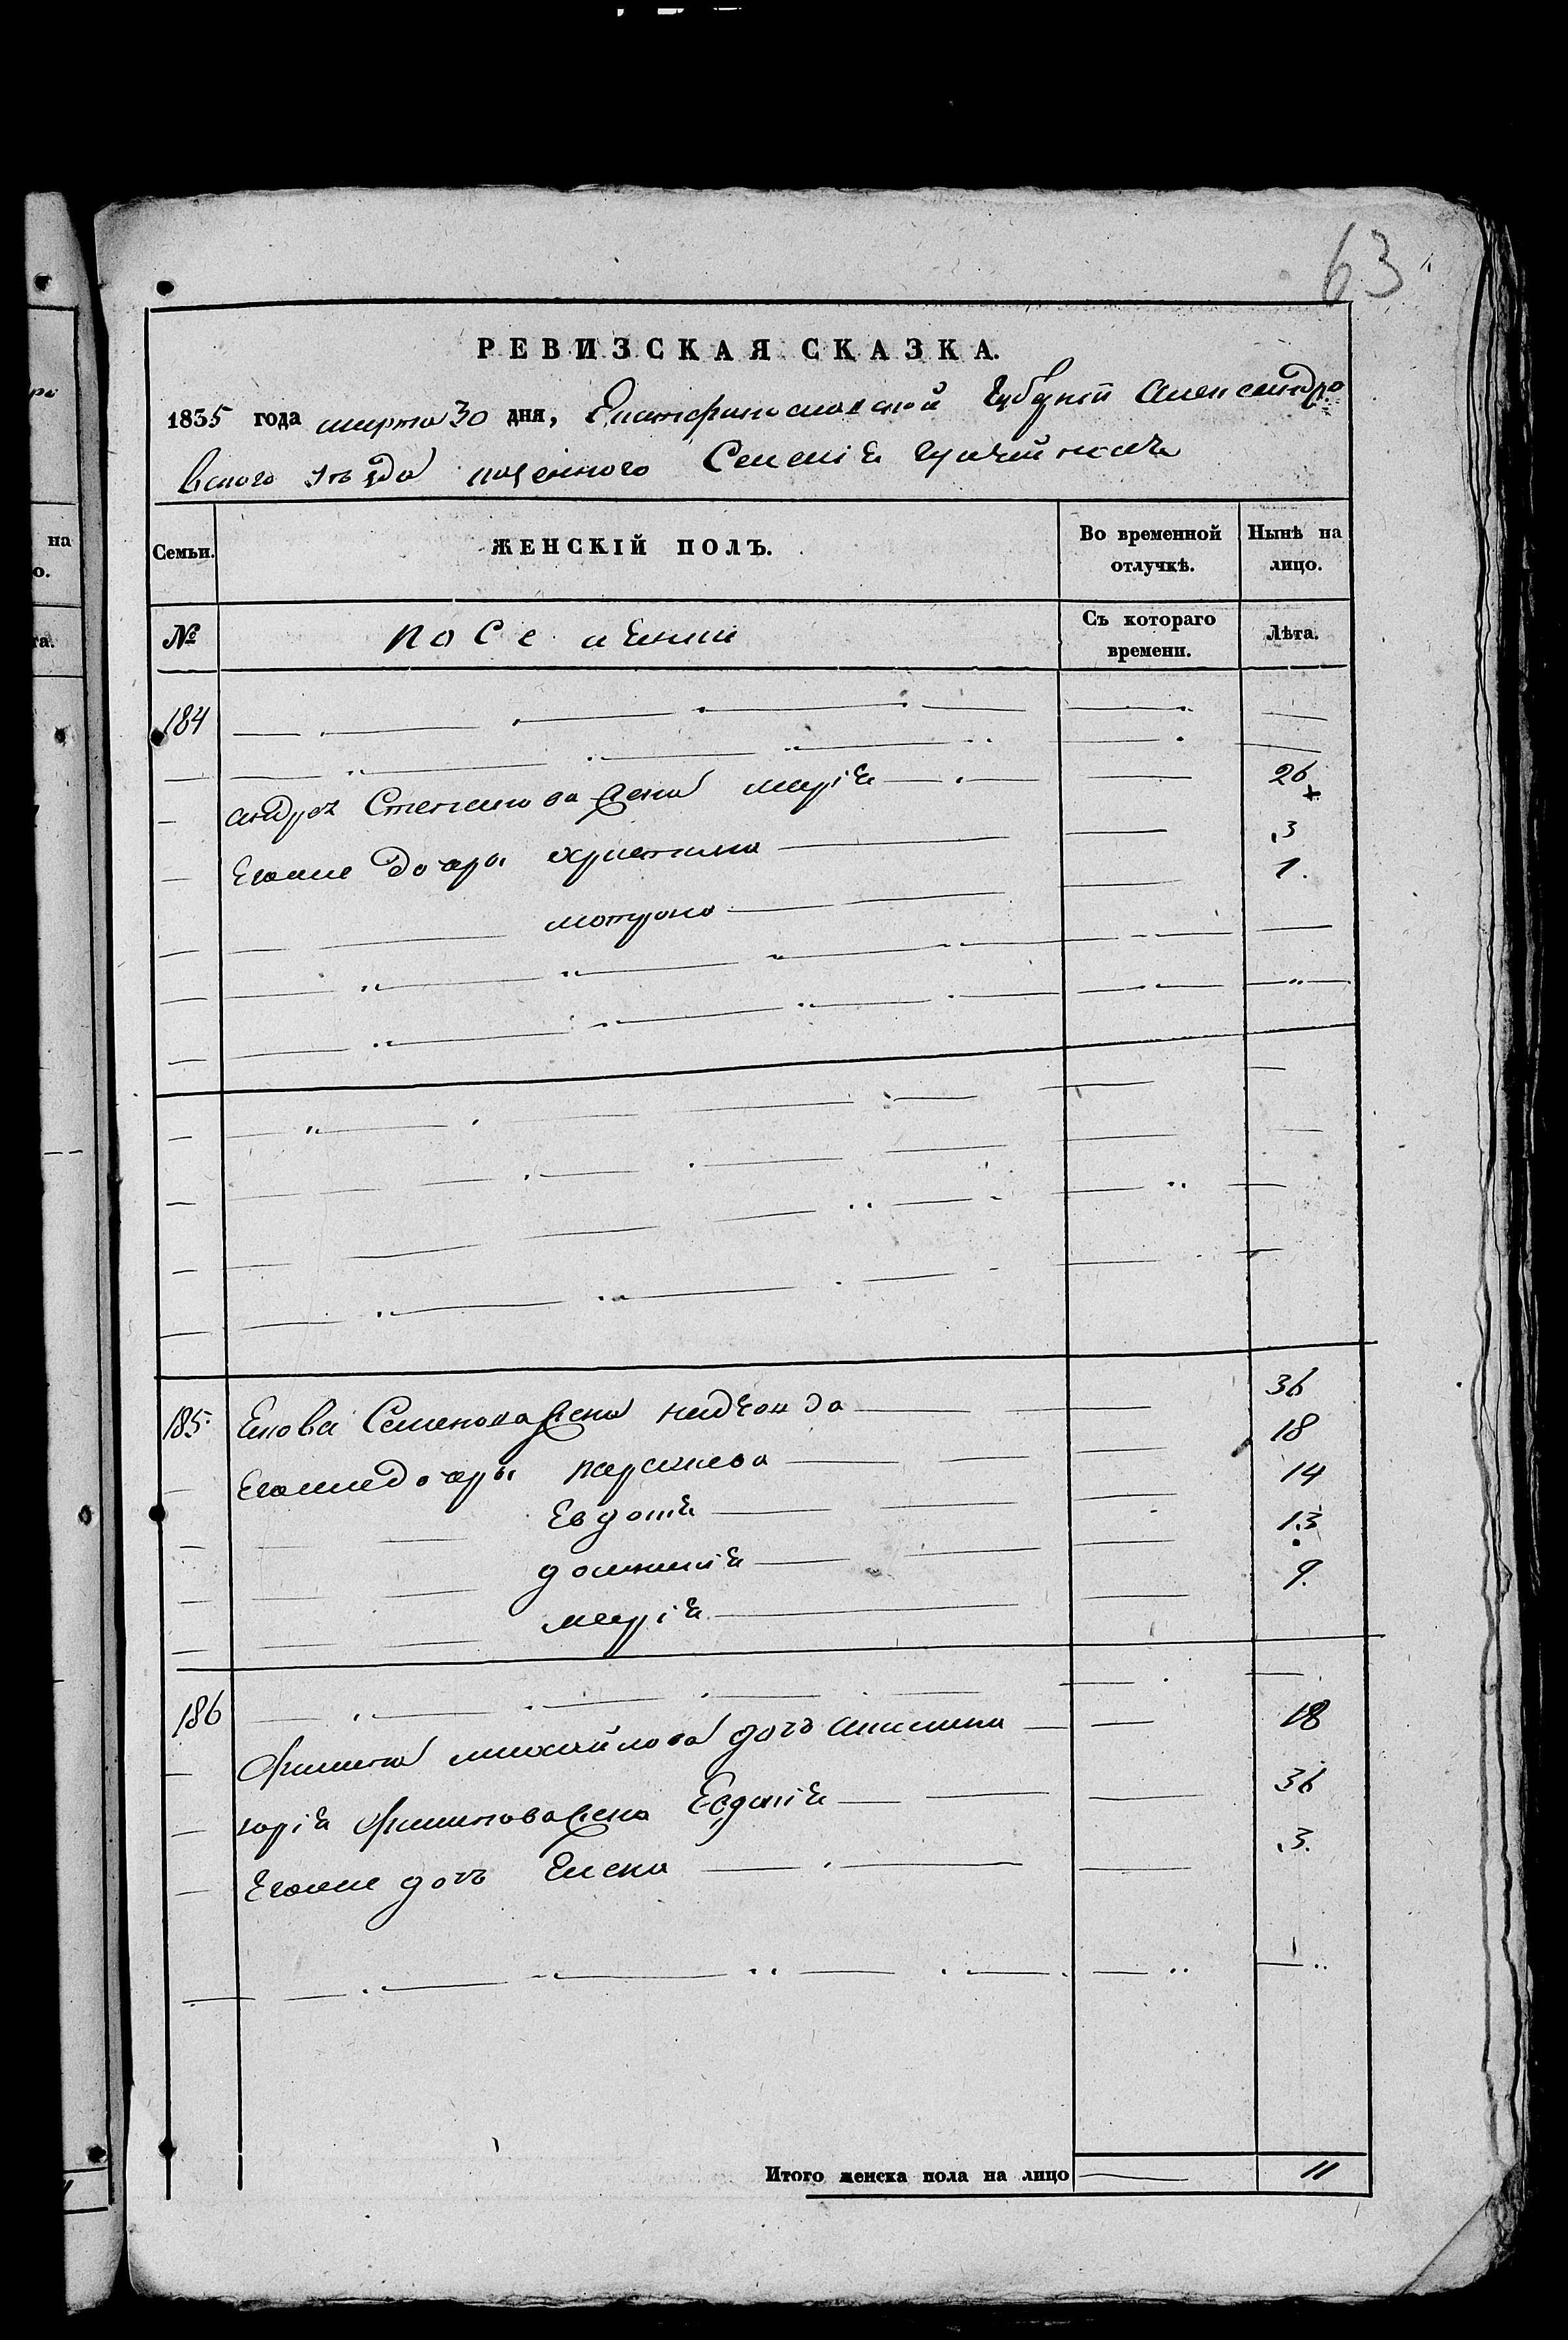 63
РЕВИЗСКАЯ СКАЗКА.
1835 года марта 30 дня, Екатеринославской Губерній Александро
вского уѣзда казенного Селенія Гуляйполя
Семьи. ЖЕНСКІЙ ПОЛЪ. Во временной отлучкѣ. Нынѣ на лицо.
№ Поселяни Съ котораго времени. Лѣта.
184
андрея Степанова жена марія 26
Егоже дочери христина 3
мотрона 1.
185. Якова Семенова жена надежда 36
Егоже дочери параскева 18
Евдокія 14
домникія 13
марія 9.
186
Филипа михайлова дочь акилина 18
юрія Филипова жена Евдокія 36
Егоже дочь Елена 3.
Итого женска пола на лицо 11